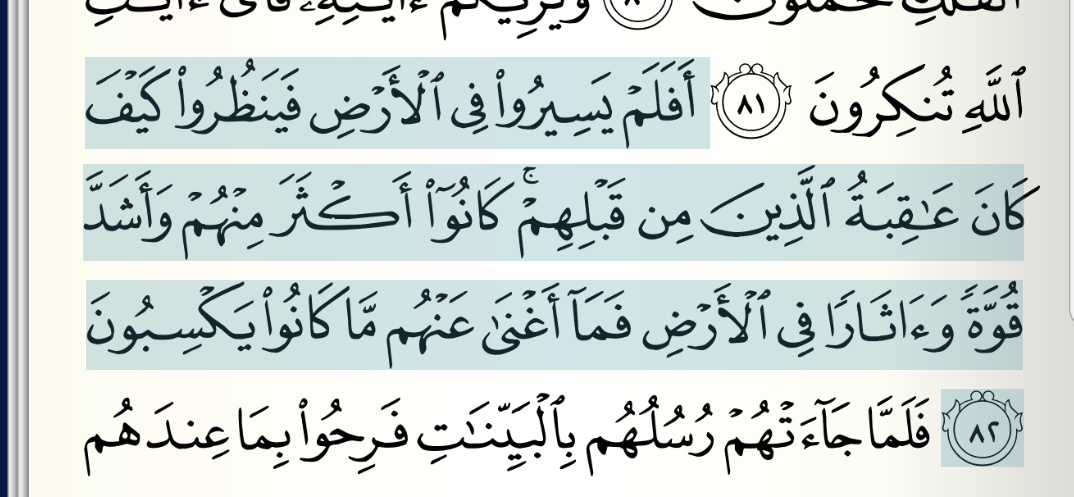 ٱلْفُلْكِ تُحْمَلُونَ ٨٠ وَيُرِيكُمْ ءَايَـٰتِهِۦ فَأَىَّ ءَايَـٰتِ
ٱللَّهِ تُنكِرُونَ ٨١ أَفَلَمْ يَسِيرُوا۟ فِى ٱلْأَرْضِ فَيَنظُرُوا۟ كَيْفَ
كَانَ عَـٰقِبَةُ ٱلَّذِينَ مِن قَبْلِهِمْ ۚ كَانُوٓا۟ أَكْثَرَ مِنْهُمْ وَأَشَدَّ
قُوَّةً وَءَاثَارًا فِى ٱلْأَرْضِ فَمَآ أَغْنَىٰ عَنْهُم مَّا كَانُوا۟ يَكْسِبُونَ
٨٢ فَلَمَّا جَآءَتْهُمْ رُسُلُهُم بِٱلْبَيِّنَـٰتِ فَرِحُوا۟ بِمَا عِندَهُم